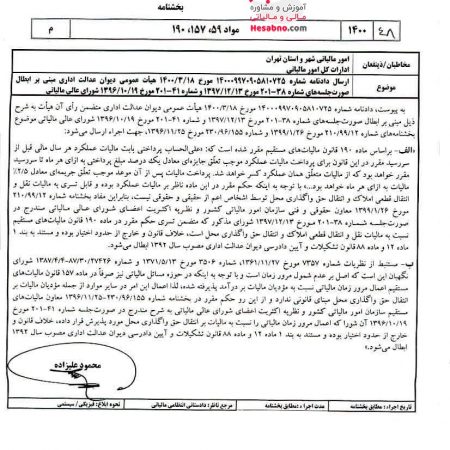 آموزش و مشاوره
مالی و مالیاتی
Hesabno.com
بخشنامه
۴۸ ۱۴۰۰ مواد ۵۹، ۱۵۷، ۱۹۰ م
مخاطبان/ذینفعان
امور مالیاتی شهر و استان تهران
ادارات کل امور مالیاتی
موضوع
ارسال دادنامه شماره ۱۴۰۰۰۹۹۷۰۹۰۵۸۱۰۷۲۵ مورخ ۱۴۰۰/۳/۱۸ هیأت عمومی دیوان عدالت اداری مبنی بر ابطال
صورت‌جلسه‌های شماره ۳۸-۲۰۱ مورخ ۱۳۹۷/۱۲/۱۳ و شماره ۴۱-۲۰۱ مورخ ۱۳۹۶/۱۰/۱۹ شورای عالی مالیاتی
به پیوست، دادنامه شماره ۱۴۰۰۰۹۹۷۰۹۰۵۸۱۰۷۲۵ مورخ ۱۴۰۰/۳/۱۸ هیأت عمومی دیوان عدالت اداری متضمن رأی آن هیأت به شرح
ذیل مبنی بر ابطال صورت‌جلسه‌های شماره ۳۸-۲۰۱ مورخ ۱۳۹۷/۱۲/۱۳ و شماره ۴۱-۲۰۱ مورخ ۱۳۹۶/۱۰/۱۹ شورای عالی مالیاتی موضوع
بخشنامه‌های شماره ۲۱۰/۹۹/۱۲ مورخ ۱۳۹۹/۱/۲۶ و شماره ۲۳۰/۹۶/۱۵۵ مورخ ۱۳۹۶/۱۱/۲۵، جهت اجراء ارسال می‌شود:
«الف- براساس ماده ۱۹۰ قانون مالیات‌های مستقیم مقرر شده است که: «علی‌الحساب پرداختی بابت مالیات عملکرد هر سال مالی قبل از
سررسید مقرر در این قانون برای پرداخت مالیات عملکرد موجب تعلق جایزه‌ای معادل یک درصد مبلغ پرداختی به ازای هر ماه تا سررسید
مقرر خواهد بود که از مالیات متعلق همان عملکرد کسر خواهد شد. پرداخت مالیات پس از آن موعد موجب تعلق جریمه‌ای معادل ۲/۵٪
مالیات به ازای هر ماه خواهد بود...» با توجه به اینکه حکم مقرر در این ماده ناظر بر مالیات عملکرد بوده و قابل تسری به مالیات نقل و
انتقال قطعی املاک و انتقال حق واگذاری محل توسط اشخاص اعم از حقیقی و حقوقی نیست، بنابراین مفاد بخشنامه شماره ۲۱۰/۹۹/۱۲
مورخ ۱۳۹۹/۱/۲۶ معاون حقوقی و فنی سازمان امور مالیاتی کشور و نظریه اکثریت اعضای شورای عالی مالیاتی مندرج در
صورت‌جلسه شماره ۳۸-۲۰۱ مورخ ۱۳۹۷/۱۲/۱۳ شورای مذکور که متضمن تسری حکم مقرر در ماده ۱۹۰ قانون مالیات‌های مستقیم
نسبت به مالیات نقل و انتقال قطعی املاک و انتقال حق واگذاری محل است، خلاف قانون و خارج از حدود اختیار بوده و مستند به بند ۱
ماده ۱۲ و ماده ۸۸ قانون تشکیلات و آیین دادرسی دیوان عدالت اداری مصوب سال ۱۳۹۲ ابطال می‌شود.
ب- مستنبط از نظریات شماره ۷۲۵۷ مورخ ۱۳۶۱/۱۱/۲۷، شماره ۳۵۰۶ مورخ ۱۳۷۱/۵/۱۳ و شماره
نگهبان این است که اصل بر عدم شمول مرور زمان است و با توجه به اینکه در حوزه مسائل مالیاتی نیز صرفاً در ماده ۱۵۷ قانون مالیات‌های
مستقیم اعمال مرور زمان مالیاتی نسبت به مؤدیان مالیات بر درآمد پذیرفته شده، لذا اعمال این امر در سایر موارد از جمله مؤدیان مالیات بر
انتقال حق واگذاری محل مبنای قانونی ندارد و از این رو حکم مقرر در بخشنامه شماره ۲۳۰/۹۶/۱۵۵ مورخ ۱۳۹۶/۱۱/۲۵ معاون مالیات‌های
مستقیم سازمان امور مالیاتی کشور و نظریه اکثریت اعضای شورای عالی مالیاتی به شرح مندرج در صورت‌جلسه شماره ۴۱-۲۰۱ مورخ
۱۳۹۶/۱۰/۱۹ آن شورا که اعمال مرور زمان مالیاتی را نسبت به مالیات بر انتقال حق واگذاری محل مورد پذیرش قرار داده، خلاف قانون و
خارج از حدود اختیار بوده و مستند به بند ۱ ماده ۱۲ و ماده ۸۸ قانون تشکیلات و آیین دادرسی دیوان عدالت اداری مصوب سال ۱۳۹۲
ابطال می‌شود.»
محمود علیزاده
تاریخ اجراء: مدت اجراء: مرجع ناظر: دادستانی انتظامی مالیاتی نحوه ابلاغ: فیزیکی / سیستمی